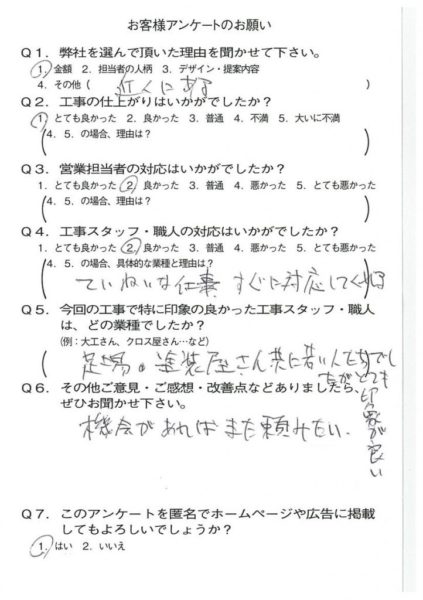 お客様アンケートのお願い
Q1．弊社を選んで頂いた理由を聞かせて下さい。
1. 金額 2. 担当者の人柄 3. デザイン・提案内容
4. その他（ 近くにある ）
Q2．工事の仕上がりはいかがでしたか？
1. とても良かった 2. 良かった 3. 普通 4. 不満 5. 大いに不満
4. 5. の場合、理由は？
Q3．営業担当者の対応はいかがでしたか？
1. とても良かった 2. 良かった 3. 普通 4. 悪かった 5. とても悪かった
4. 5. の場合、理由は？
Q4．工事スタッフ・職人の対応はいかがでしたか？
1. とても良かった 2. 良かった 3. 普通 4. 悪かった 5. とても悪かった
4. 5. の場合、具体的な業種と理由は？
ていねいな仕事 すぐに対応してくれる
Q5．今回の工事で特に印象の良かった工事スタッフ・職人
は、どの業種でしたか？
(例：大工さん、クロス屋さん…など)
足場。塗装屋さん共に若い人たちでし
たがとても
印象が良い
Q6．その他ご意見・ご感想・改善点などありましたら、
ぜひお聞かせ下さい。
機会があればまた頼みたい．
Q7．このアンケートを匿名でホームページや広告に掲載
してもよろしいでしょうか？
1. はい 2. いいえ